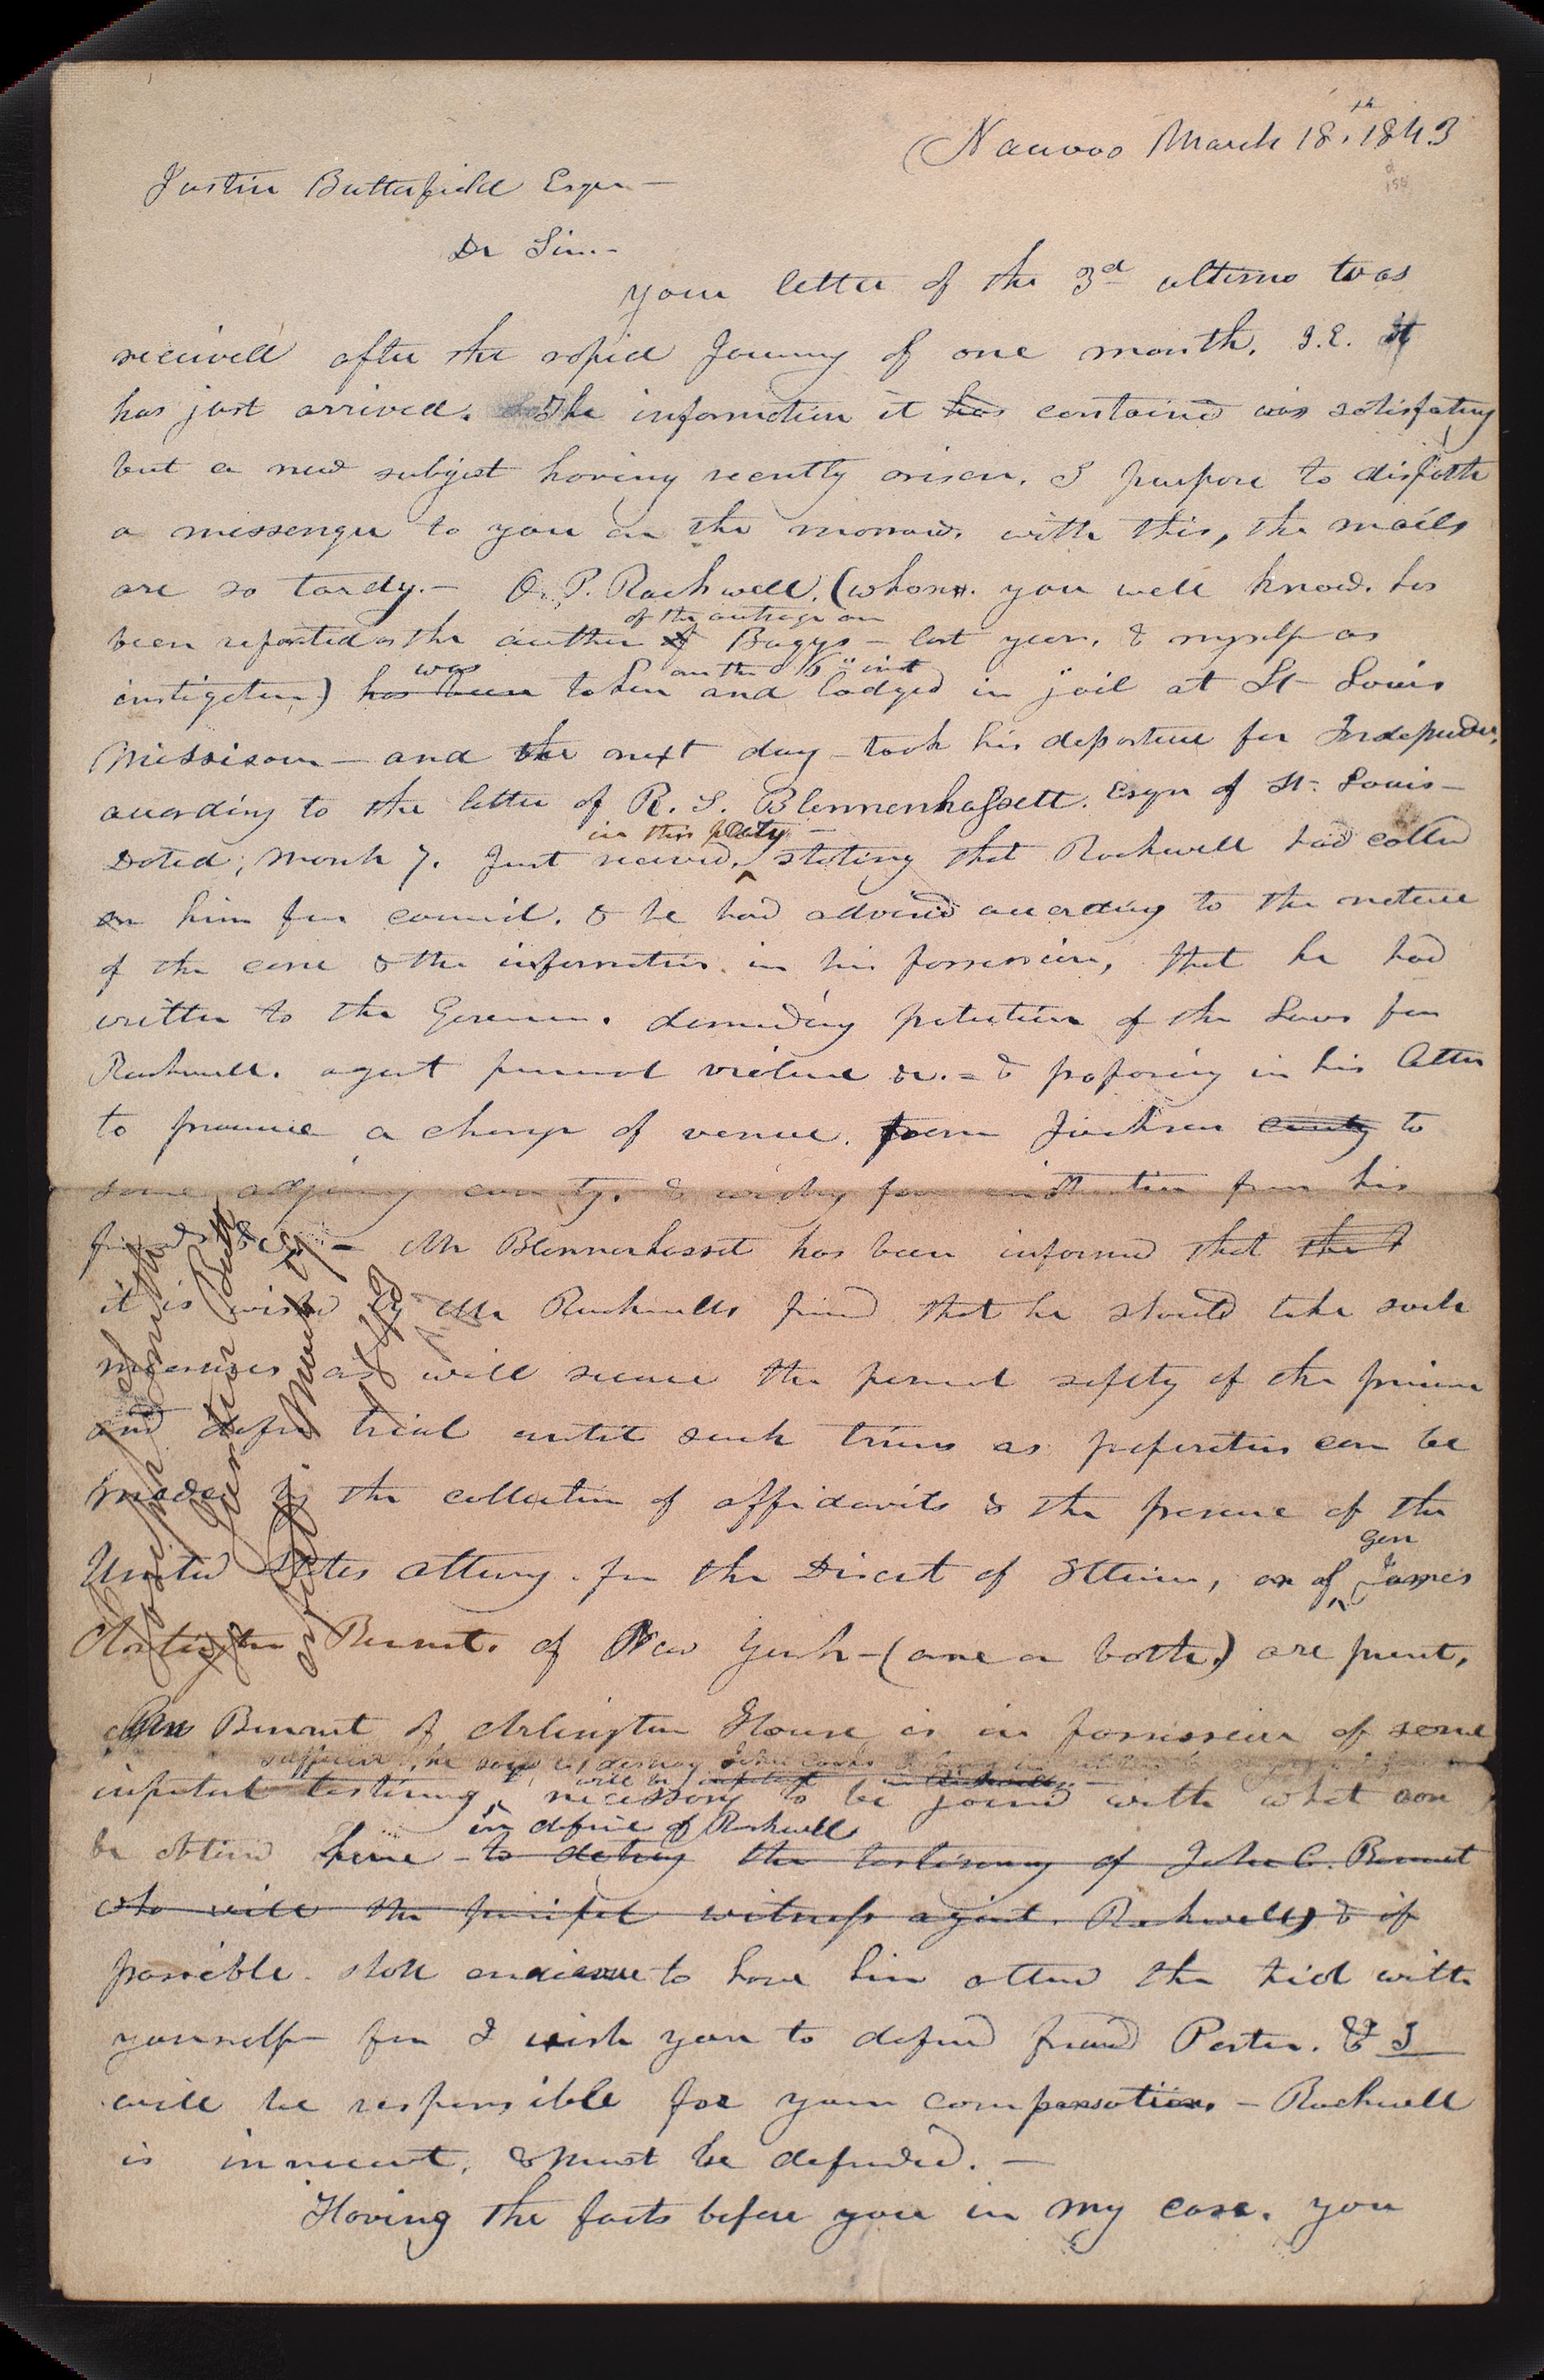 Nauvoo March 18th. 1843
Justin Butterfield Esqr—
Dr Sir.—
your letter of the 3d ultimo was
received after the rapid Journey of one month. I.E. it
has just arrived. The information it has contained was satisfactory
but a new subject having recently arisen. I purpose to dispatch
a messenger to you on the morrow. with this, the mails
are so tardy.— O. P. Rockwell. (whom. you well know. has
of the outrage on
been reported as the author of Boggs— last year, & myself as
was on the 6" inst
instigator) has been taken and lodged in jail at St Louis
Missisouri— and the next day— took his departure for Independence,
according to the letter of R. S. Blennenhassett. Esqr of St. Louis—
in this city—
Dated, March 7. Just received, stating that Rockwell had called
on him for council. & he had advised according to the nature
of the case & the information. in his possession, that he had
written to the Governor. demanding protection of the Laws for
Rockwell. against personal violence &c.= & proposing in his letter
to procure a change of venue. from Jackson county to
some adjoining county. & wishing for instruction from his
friends &c.— Mr Blennerhassett has been informed that the
it is wished by Mr Rockwells friend that he should take such
measures as will secure the personal safety of the prisoner
and defer trial until such time as preparation can be
made by the collection of affidavits & the presence of the
United States attorney. for the District of Illinois, or of
gen
James
Arlington Bennet. of New York—(one or both.) are present,
Gen Bennet of Arlington House is in possession of some
sufficient, he says to destroy John Cooks
important testimony, will be necessary to be joined with what can
in defence of Rockwell
be obtained here— to destroy the testimony of John C. Bennet
who will the principal witness against. Rockwell,) & if
possible. shall endeavor to have him attend the trial with
yourself— for I wish you to defend friend Porter. & I
will be responsible for your compensation.— Rockwell
is innocent, & must be defended.—
Having the facts before you in my case. you
Joseph Smith
Justin Butt
March 18
1843